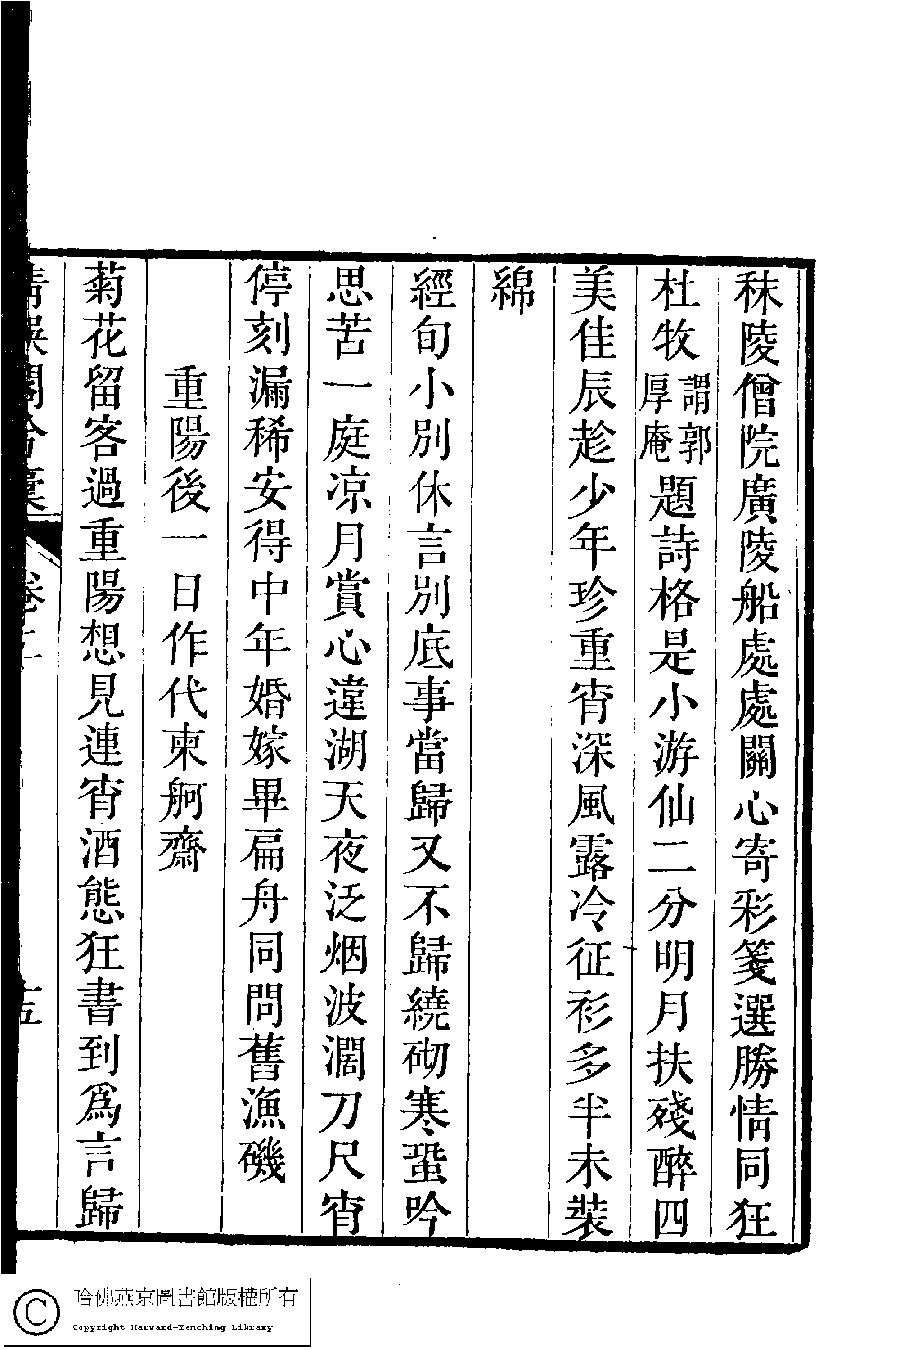 秣陵僧院廣陵船處處關心寄彩箋選勝情同狂
杜牧謂郭厚庵題詩格是小游仙二分明月扶殘醉四
美佳辰趁少年珍重宵深風露冷征衫多半未裝
綿
經旬小別休言別底事當歸又不歸繞砌寒蛩吟
思苦一庭凉月賞心違湖天夜泛烟波濶刀尺宵
停刻漏稀安得中年婚嫁畢扁舟同問舊漁磯
重陽後一日作代柬舸齋
菊花留客過重陽想見連宵酒態狂書到爲言歸
卷二
十五
哈佛燕京圖書館版權所有
Copyright Harvard-Yenching Library